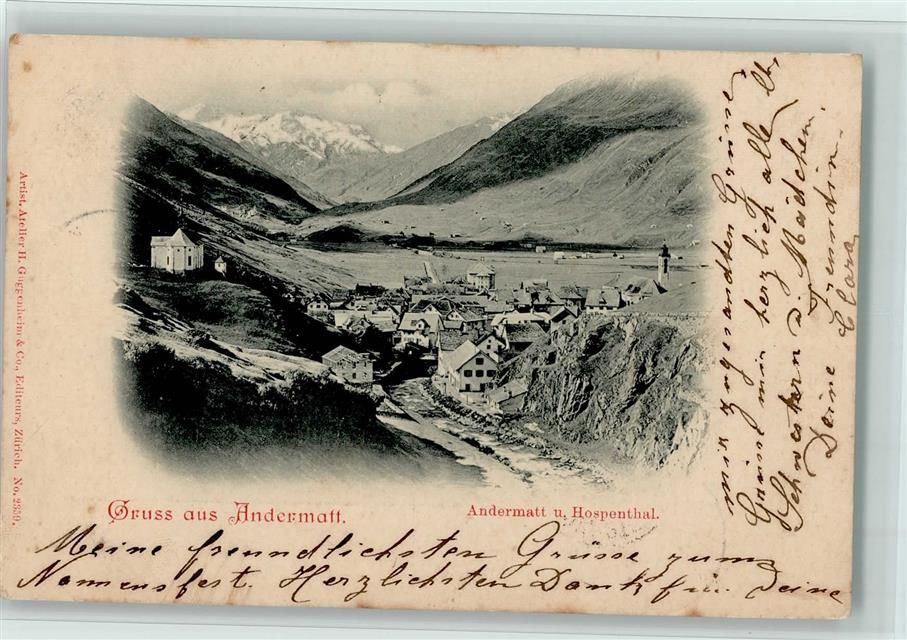 Artist. Atelier H. Guggenheim & Co., Editeurs, Zürich. No. 2359.
Gruss aus Andermatt.
Andermatt u. Hospenthal.
Meine freundlichsten Grüsse zum
Namensfest. Herzlichsten Dank für Deine
mir zugesandten Grüsse
herzlich alle
Schwestern Mädchen.
Deine Freundin
Clara